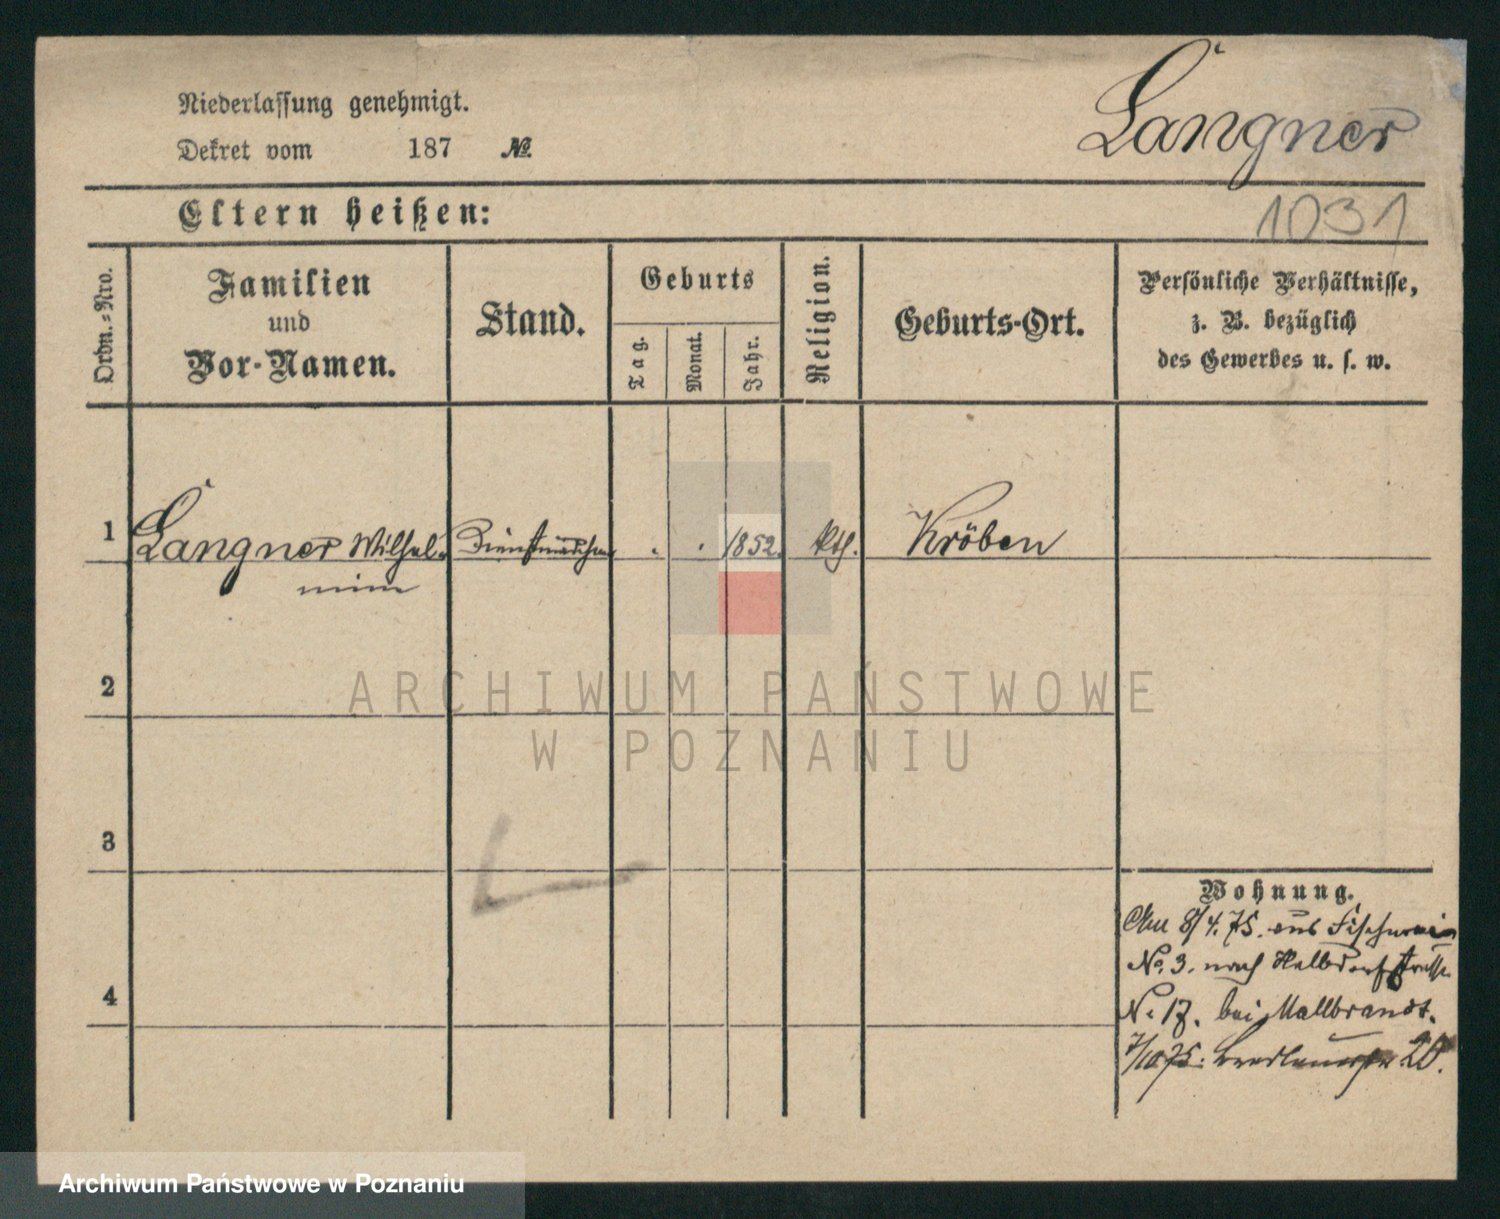 Langner
Niederlassung genehmigt.
Dekret vom 187 No.
Eltern heißen:
1031
Ordn.-Nro.
Familien
und
Vor-Namen.
Stand.
Geburts
Tag.
Monat.
Jahr.
Religion.
Geburts-Ort.
Persönliche Verhältnisse,
z. B. bezüglich
des Gewerbes u. s. w.
1 Langner Wilhel- Dienstmädchen . . 1852. kth. Kröben
mine
2
ARCHIWUM PAŃSTWOWE
W POZNANIU
3
4
Wohnung.
8/4.75. aus Fischerei
No. 3. nach Halbdorfstrasse
No. 17. bei Mallbrandt.
7/10 75. 20.
Archiwum Państwowe w Poznaniu